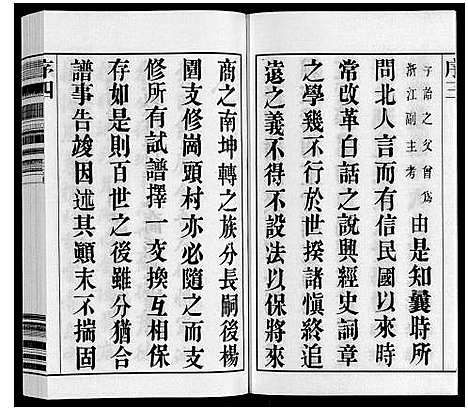 序三
子詒之父曾爲
浙江副主考
由是知曩時所
問北人言而有信民國以來時
常改革白話之說興經史詞章
之學幾不行於世揆諸愼終追
遠之義不得不設法以保將來
商之南坤轉之族分長嗣後楊
園支修崗頭村亦必隨之而支
修所有試譜擇一交換互相保
存如是則百世之後雖分猶合
譜事告竣因述其顚末不揣固
序四